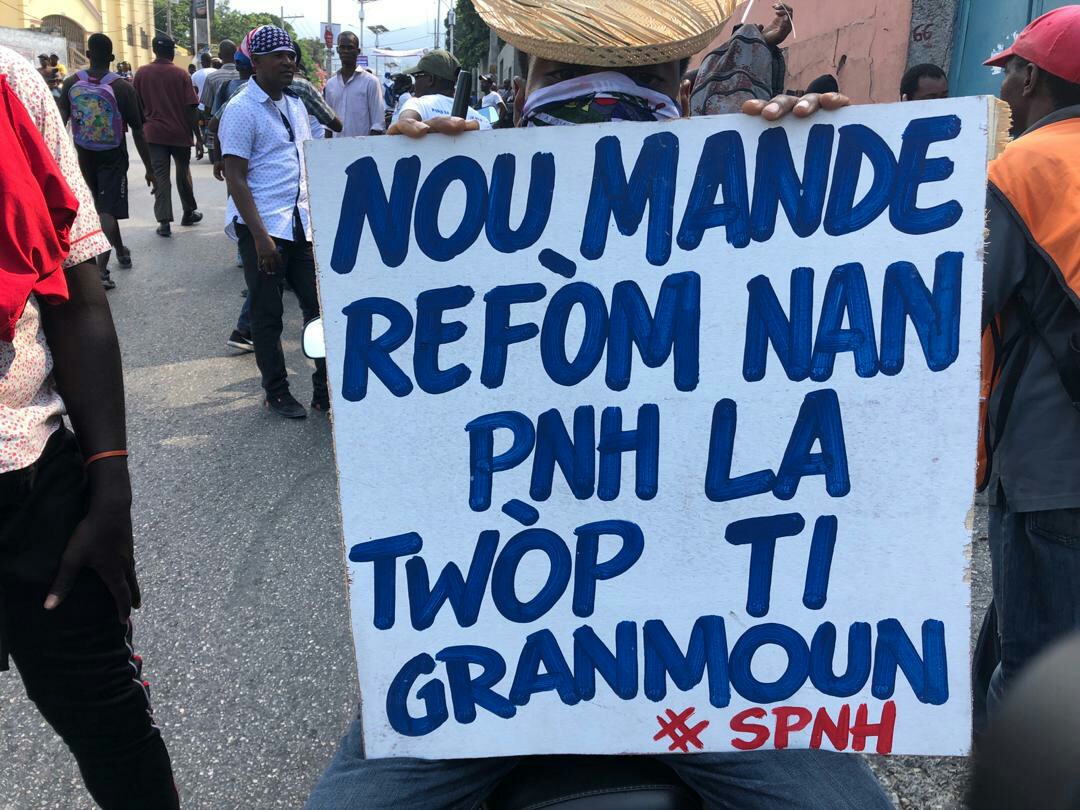 NOU MANDE
REFÒM NAN
PNH LA
TWÒP TI
GRANMOUN
# SPNH
66